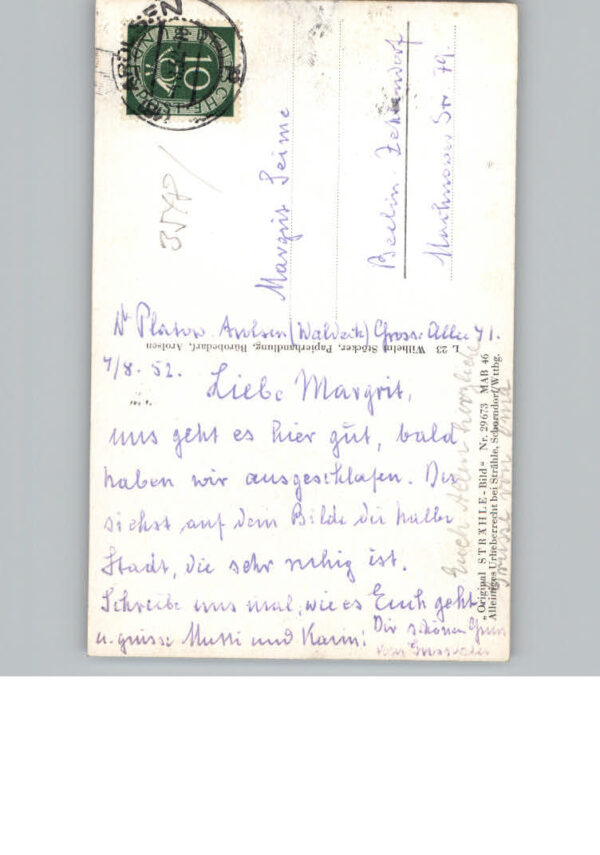 AROLSEN
10
Margrit Seime
Berlin-Zehlendorf
Str. 79.
Platow Arolsen (Waldeck) Grosse Allee 41.
L 23 Wilhelm Stöcker, Papierhandlung, Bürobedarf, Arolsen
4/8. 52.
Liebe Margrit,
uns geht es hier gut, bald
haben wir ausgeschlafen. Du
siehst auf dem Bilde die halbe
Stadt, die sehr ruhig ist.
Schreibe uns mal, wie es Euch geht
u. grüsse Mutti und Karin! Dir schönen Gruss
Euch Allen herzliche
Grüsse von Oma
„Original STRÄHLE-Bild“ Nr. 29673 MAB 46
Alleiniges Urheberrecht bei Strähle, Schorndorf/Wttbg.